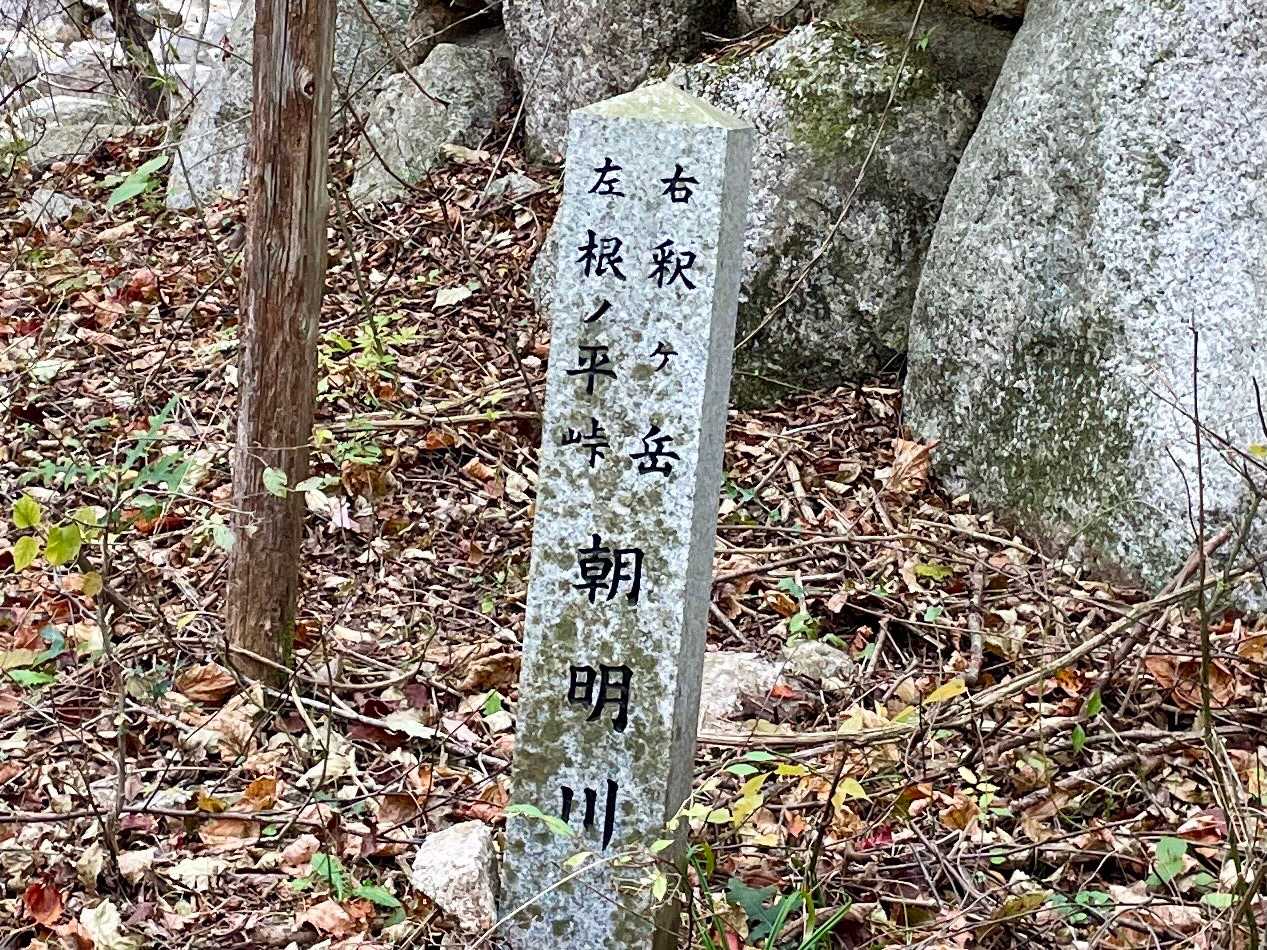 右釈ヶ岳
左根ノ平峠
朝明川